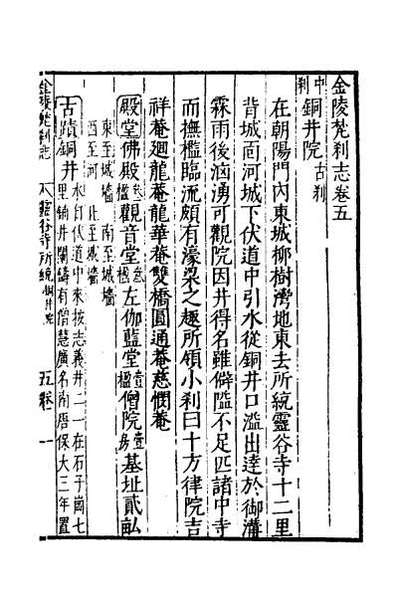 金陵梵刹志卷五
中刹銅井院古刹
在朝陽門內東城柳樹灣地東去所統靈谷寺十二里
背城面河城下伏道中引水從銅井口濫出達於御溝
霖雨後洶湧可觀院因井得名雖僻隘不足匹諸中寺
而撫檻臨流頗有濠梁之趣所領小刹曰十方律院吉
祥菴廻龍菴龍華菴雙橋圓通菴慈憫菴
殿堂佛殿叁楹觀音堂叁楹左伽藍堂壹楹僧院壹房基址貳畝
東至城牆南至城牆
西至河北至城牆
古蹟銅井水自伏道中來按志義井二一在石子崗七
里鋪井闌鑄有僧慧廣名南唐保大三年置
金陵梵刹志
靈谷寺所統銅井院
五卷
一